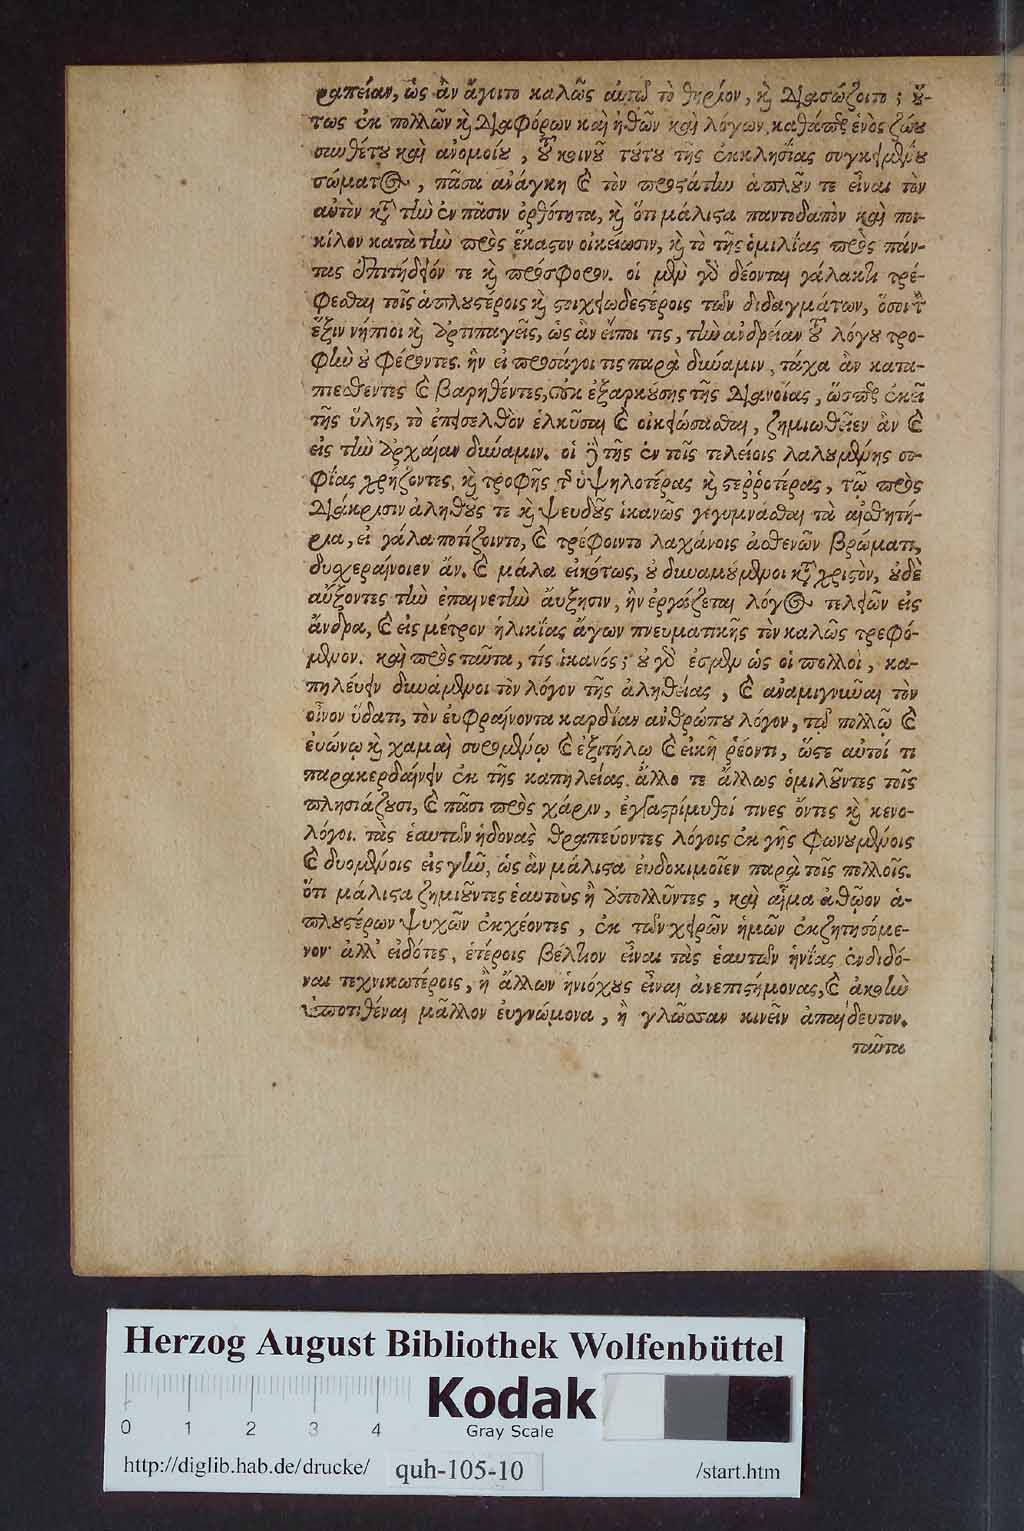 ραπείαν, ὡς ἂν ἄγοιτο καλῶς αὐτῷ τὸ θηρίον, καὶ διασώζοιτο; οὕ-
τως ἐκ πολλῶν καὶ διαφόρων καὶ ἠθῶν καὶ λόγων, καθάπερ ἑνὸς ζώου
συνθέτου καὶ ἀνομοίου, τοῦ κοινοῦ τούτου τῆς ἐκκλησίας συγκειμένου
σώματος, πᾶσα ἀνάγκη καὶ τὸν προστάτην ἁπλοῦν τε εἶναι τὸν
αὐτὸν κατὰ τὴν ἐν πᾶσιν ὀρθότητα, καὶ ὅτι μάλιστα παντοδαπὸν καὶ ποι-
κίλον κατὰ τὴν πρὸς ἕκαστον οἰκείωσιν, καὶ τὸ τῆς ὁμιλίας πρὸς πάν-
τας ἐπιτήδειόν τε καὶ πρόσφορον. οἱ μὲν γὰρ δέονται γάλακτι τρέ-
φεσθαι τοῖς ἁπλουστέροις καὶ στοιχειωδεστέροις τῶν διδαγμάτων, ὅσοι τὴν
ἕξιν νήπιοι καὶ ἀρτιπαγεῖς, ὡς ἂν εἴποι τις, τὴν ἀνδρείαν τοῦ λόγου τρο-
φὴν οὐ φέροντες. ἣν εἰ προσάγοι τις παρὰ δύναμιν, τάχα ἂν κατα-
πιεσθέντες καὶ βαρηθέντες, οὐκ ἐξαρκούσης τῆς διανοίας, ὥσπερ ἐκεῖ
τῆς ὕλης, τὸ ἐπεισελθὸν ἑλκῦσαι καὶ οἰκειώσασθαι, ζημιωθεῖεν ἂν καὶ
εἰς τὴν ἀρχαίαν δύναμιν. οἱ δὲ τῆς ἐν τοῖς τελείοις λαλουμένης σο-
φίας χρήζοντες, καὶ τροφῆς τῆς ὑψηλοτέρας καὶ στερροτέρας, τῷ πρὸς
διάκρισιν ἀληθοῦς τε καὶ ψευδοῦς ἱκανῶς γεγυμνάσθαι τὰ αἰσθητή-
ρια, εἰ γάλα ποτίζοιντο, καὶ τρέφοιντο λαχάνοις ἀσθενῶν βρώματι,
δυσχεραίνοιεν ἄν. καὶ μάλα εἰκότως, οὐ δυναμούμενοι κατὰ χριστὸν, οὐδὲ
αὔξοντες τὴν ἐπαινετὴν ἄυξησιν, ἣν ἐργάζεται λόγος τελειῶν εἰς
ἄνδρα, καὶ εἰς μέτρον ἡλικίας ἄγων πνευματικῆς τὸν καλῶς τρεφό-
μενον. καὶ πρὸς ταῦτα, τίς ἱκανός; οὐ γάρ ἐσμεν ὡς οἱ πολλοὶ, κα-
πηλεύειν δυνάμενοι τὸν λόγον τῆς ἀληθείας, καὶ ἀναμιγνῦναι τὸν
οἶνον ὕδατι, τὸν ἐυφραίνοντα καρδίαν ἀνθρώπου λόγον, τῷ πολλῷ καὶ
ἐυώνῳ καὶ χαμαὶ συρομένῳ καὶ ἐξιτήλῳ καὶ εἰκῆ ῥέοντι, ὥστε αὐτοί τι
παρακερδαίνειν ἐκ τῆς καπηλείας. ἄλλο τε ἄλλως ὁμιλοῦντες τοῖς
πλησιάζουσι, καὶ πᾶσι πρὸς χάριν, ἐγγαστρίμυθοί τινες ὄντες καὶ κενο-
λόγοι. τὰς ἑαυτῶν ἡδονὰς θεραπεύοντες λόγοις ἐκ γῆς φωνουμένοις
καὶ δυομένοις εἰς γῆν, ὡς ἂν μάλιστα ἐυδοκιμοῖεν παρὰ τοῖς πολλοῖς.
ὅτι μάλιστα ζημιοῦντες ἑαυτοὺς ἢ ἀπολλῦντες, καὶ αἷμα ἀθῷον ἁ-
πλουστέρων ψυχῶν ἐκχέοντες, ἐκ τῶν χειρῶν ἡμῶν ἐκζητησόμε-
νον· ἀλλ' εἰδότες, ἑτέροις βέλτιον εἶναι τὰς ἑαυτῶν ἡνίας ἐνδιδό-
ναι τεχνικωτέροις, ἢ ἄλλων ἡνιόχους εἶναι ἀνεπιστήμονας, καὶ ἀκοὴν
ὑποτιθέναι μᾶλλον ἐυγνώμονα, ἢ γλῶσσαν κινεῖν ἀπαίδευτον.
ταῦτα
Herzog August Bibliothek Wolfenbüttel
0 1 2 3 4
Kodak
Gray Scale
http://diglib.hab.de/drucke/ quh-105-10 /start.htm